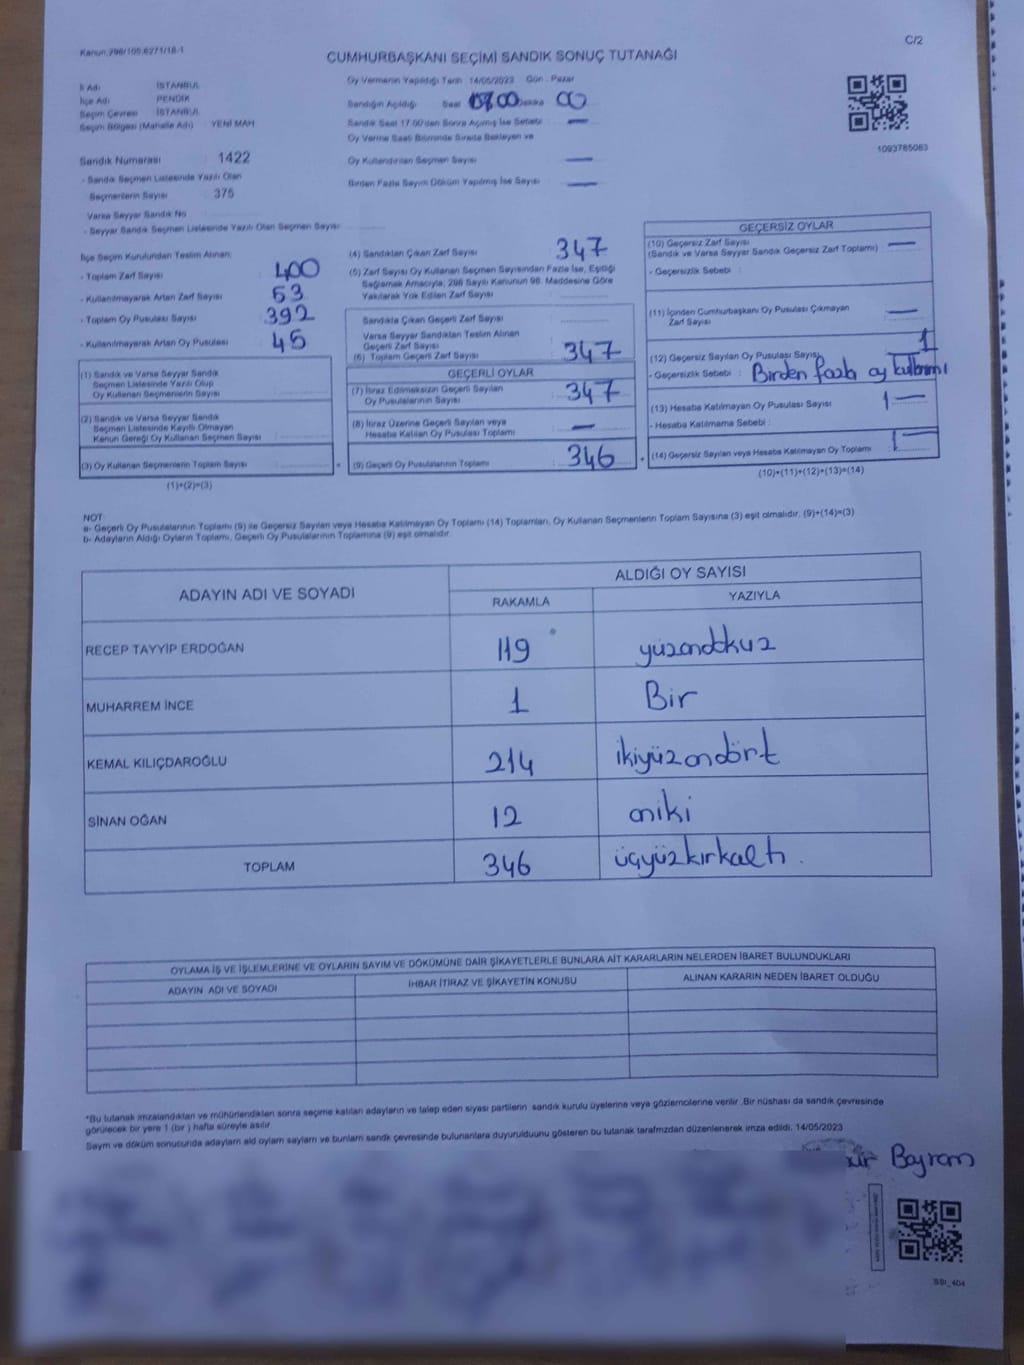 Kanun:298/105,6271/18-1
C/2
CUMHURBAŞKANI SEÇİMİ SANDIK SONUÇ TUTANAĞI
İl Adı İSTANBUL
İlçe Adı PENDİK
Seçim Çevresi İSTANBUL
Seçim Bölgesi (Mahalle Adı) YENİ MAH
Oy Vermenin Yapıldığı Tarih : 14/05/2023 Gün : Pazar
Sandığın Açıldığı Saat 17:00 Dakika 00
Sandık Saat 17:00'den Sonra Açılmış İse Sebebi : —
Oy Verme Saati Bitiminde Sırada Bekleyen ve
Oy Kullandırılan Seçmen Sayısı : —
Birden Fazla Sayım Döküm Yapılmış İse Sayısı : —
1093785083
Sandık Numarası : 1422
- Sandık Seçmen Listesinde Yazılı Olan
Seçmenlerin Sayısı : 375
Varsa Seyyar Sandık No :
- Seyyar Sandık Seçmen Listesinde Yazılı Olan Seçmen Sayısı :
İlçe Seçim Kurulundan Teslim Alınan;
- Toplam Zarf Sayısı : 400
- Kullanılmayarak Artan Zarf Sayısı : 53
- Toplam Oy Pusulası Sayısı : 392
- Kullanılmayarak Artan Oy Pusulası : 45
(1) Sandık ve Varsa Seyyar Sandık
Seçmen Listesinde Yazılı Olup
Oy Kullanan Seçmenlerin Sayısı :
(2) Sandık ve Varsa Seyyar Sandık
Seçmen Listesinde Kayıtlı Olmayan
Kanun Gereği Oy Kullanan Seçmen Sayısı :
(3) Oy Kullanan Seçmenlerin Toplam Sayısı :
(1)+(2)=(3)
(4) Sandıktan Çıkan Zarf Sayısı : 347
(5) Zarf Sayısı Oy Kullanan Seçmen Sayısından Fazla İse, Eşitliği
Sağlamak Amacıyla, 298 Sayılı Kanunun 98. Maddesine Göre
Yakılarak Yok Edilen Zarf Sayısı :
Sandıkta Çıkan Geçerli Zarf Sayısı :
Varsa Seyyar Sandıktan Teslim Alınan
Geçerli Zarf Sayısı :
(6) Toplam Geçerli Zarf Sayısı : 347
GEÇERLİ OYLAR
(7) İtiraz Edilmeksizin Geçerli Sayılan
Oy Pusulalarının Sayısı : 347
(8) İtiraz Üzerine Geçerli Sayılan veya
Hesaba Katılan Oy Pusulası Toplamı : —
(9) Geçerli Oy Pusulalarının Toplamı : 346
GEÇERSİZ OYLAR
(10) Geçersiz Zarf Sayısı : —
(Sandık ve Varsa Seyyar Sandık Geçersiz Zarf Toplamı)
- Geçersizlik Sebebi :
(11) İçinden Cumhurbaşkanı Oy Pusulası Çıkmayan
Zarf Sayısı : —
(12) Geçersiz Sayılan Oy Pusulası Sayısı : 1
- Geçersizlik Sebebi : Birden fazla oy kullanımı
(13) Hesaba Katılmayan Oy Pusulası Sayısı : —
- Hesaba Katılmama Sebebi :
(14) Geçersiz Sayılan veya Hesaba Katılmayan Oy Toplamı : 1
(10)+(11)+(12)+(13)=(14)
NOT:
a- Geçerli Oy Pusulalarının Toplamı (9) ile Geçersiz Sayılan veya Hesaba Katılmayan Oy Toplamı (14) Toplamları, Oy Kullanan Seçmenlerin Toplam Sayısına (3) eşit olmalıdır. (9)+(14)=(3)
b- Adayların Aldığı Oyların Toplamı, Geçerli Oy Pusulalarının Toplamına (9) eşit olmalıdır.
ADAYIN ADI VE SOYADI
ALDIĞI OY SAYISI
RAKAMLA YAZIYLA
RECEP TAYYİP ERDOĞAN 119 yüzondokuz
MUHARREM İNCE 1 Bir
KEMAL KILIÇDAROĞLU 214 ikiyüzondört
SİNAN OĞAN 12 oniki
TOPLAM 346 üçyüzkırkaltı.
OYLAMA İŞ VE İŞLEMLERİNE VE OYLARIN SAYIM VE DÖKÜMÜNE DAİR ŞİKAYETLERLE BUNLARA AİT KARARLARIN NELERDEN İBARET BULUNDUKLARI
ADAYIN ADI VE SOYADI İHBAR İTİRAZ VE ŞİKAYETİN KONUSU ALINAN KARARIN NEDEN İBARET OLDUĞU
*Bu tutanak imzalandıktan ve mühürlendikten sonra seçime katılan adayların ve talep eden siyasi partilerin sandık kurulu üyelerine veya gözlemcilerine verilir .Bir nüshası da sandık çevresinde
görülecek bir yere 1 (bir ) hafta süreyle asılır
Sayım ve döküm sonucunda adayların aldı oyların sayları ve bunların sandık çevresinde bulunanlara duyurulduunu gösteren bu tutanak tarafmzdan düzenlenerek imza edildi. 14/05/2023
Bayram
SSI_404